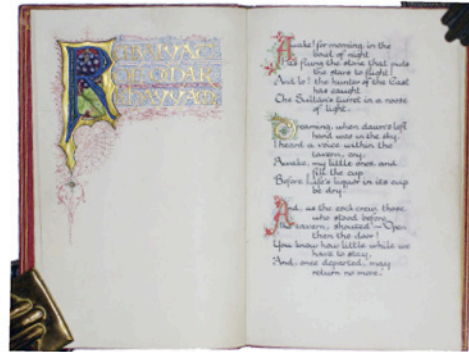 RUBAIYAT
OF OMAR
KHAYYAM
Awake! for morning in the
bowl of night
Has flung the stone that puts
the stars to flight!
And lo! the hunter of the East
has caught
The Sultan's turret in a noose
of light.
Dreaming, when dawn's left
hand was in the sky,
I heard a voice within the
tavern, cry,
Awake, my little ones, and
fill the cup
Before Life's liquor in its cup
be dry.
And, as the cock crew, those
who stood before
the tavern, shouted—Open
then the door!
You know how little while we
have to stay,
And, once departed, may
return no more.